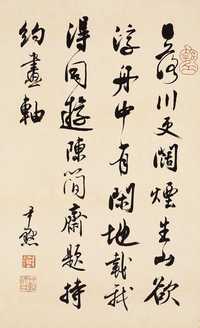 日落川更闊煙生山欲
浮舟中有閑地載我
得同遊陳簡齋題持
約畫軸
尹默